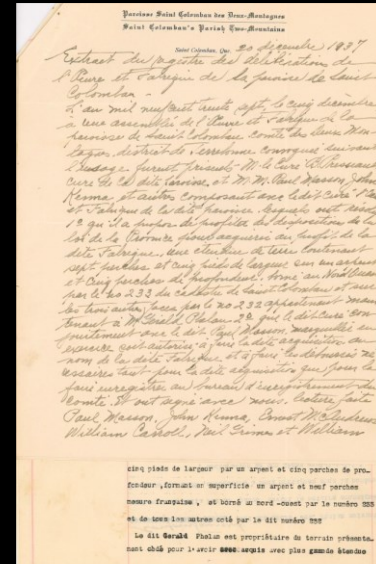 Paroisse Saint Colomban des Deux-Montagnes
Saint Colomban's Parish Two-Mountains
Saint Colomban, Que. 20 décembre 1937
Extrait du registre des délibérations de
l'Œuvre et Fabrique de la paroisse de Saint
Colomban -
L'an mil neuf cent trente sept, le cinq décembre
à une assemblée de l'Œuvre et Fabrique de la
paroisse de Saint Colomban comté des Deux Mon
tagnes, district de Terrebonne convoquée suivant
l'usage furent présents M. le Curé
curé de la dite paroisse, et M. M. Paul Masson, John
Kenna et autres composant avec le dit curé l'Œuvre
et Fabrique de la dite paroisse, lesquels ont résolu
1º qu'il a propos de profiter des dispositions de la
loi de la Province pour acquérir au profit de la
dite Fabrique, une étendue de terre contenant
sept perches et cinq pieds de largeur sur un arpent
et cinq perches de profondeur, borné au Nord Ouest
par le no 233 du cadastre de Saint Colomban et sur
les trois autres par le no 232 appartenant main
tenant à M. Phelan 2º que le dit curé con
jointement avec le dit Paul Masson, marguillier en
exercice soit autorisé à faire la dite acquisition au
nom de la dite Fabrique et à faire les déboursés né
cessaires tant pour la dite acquisition que pour la
faire enregistrer au bureau d'enregistrement du
comté. Et ont signé avec nous. lecture faite
Paul Masson, John Kenna, Ernest McAndrew
William Carroll, Neil Grimes et William
cinq pieds de largeur par un arpent et cinq perches de pro-
fondeur ,formant en superficie un arpent et neuf perches
mesure française , et borné au nord -ouest par le numéro 233
et de tous les autres coté par le dit numéro 232
Le dit Gerald Phelan est propriétaire du terrain présente-
ment cédé pour l'avoir acquis avec plus grande étendue